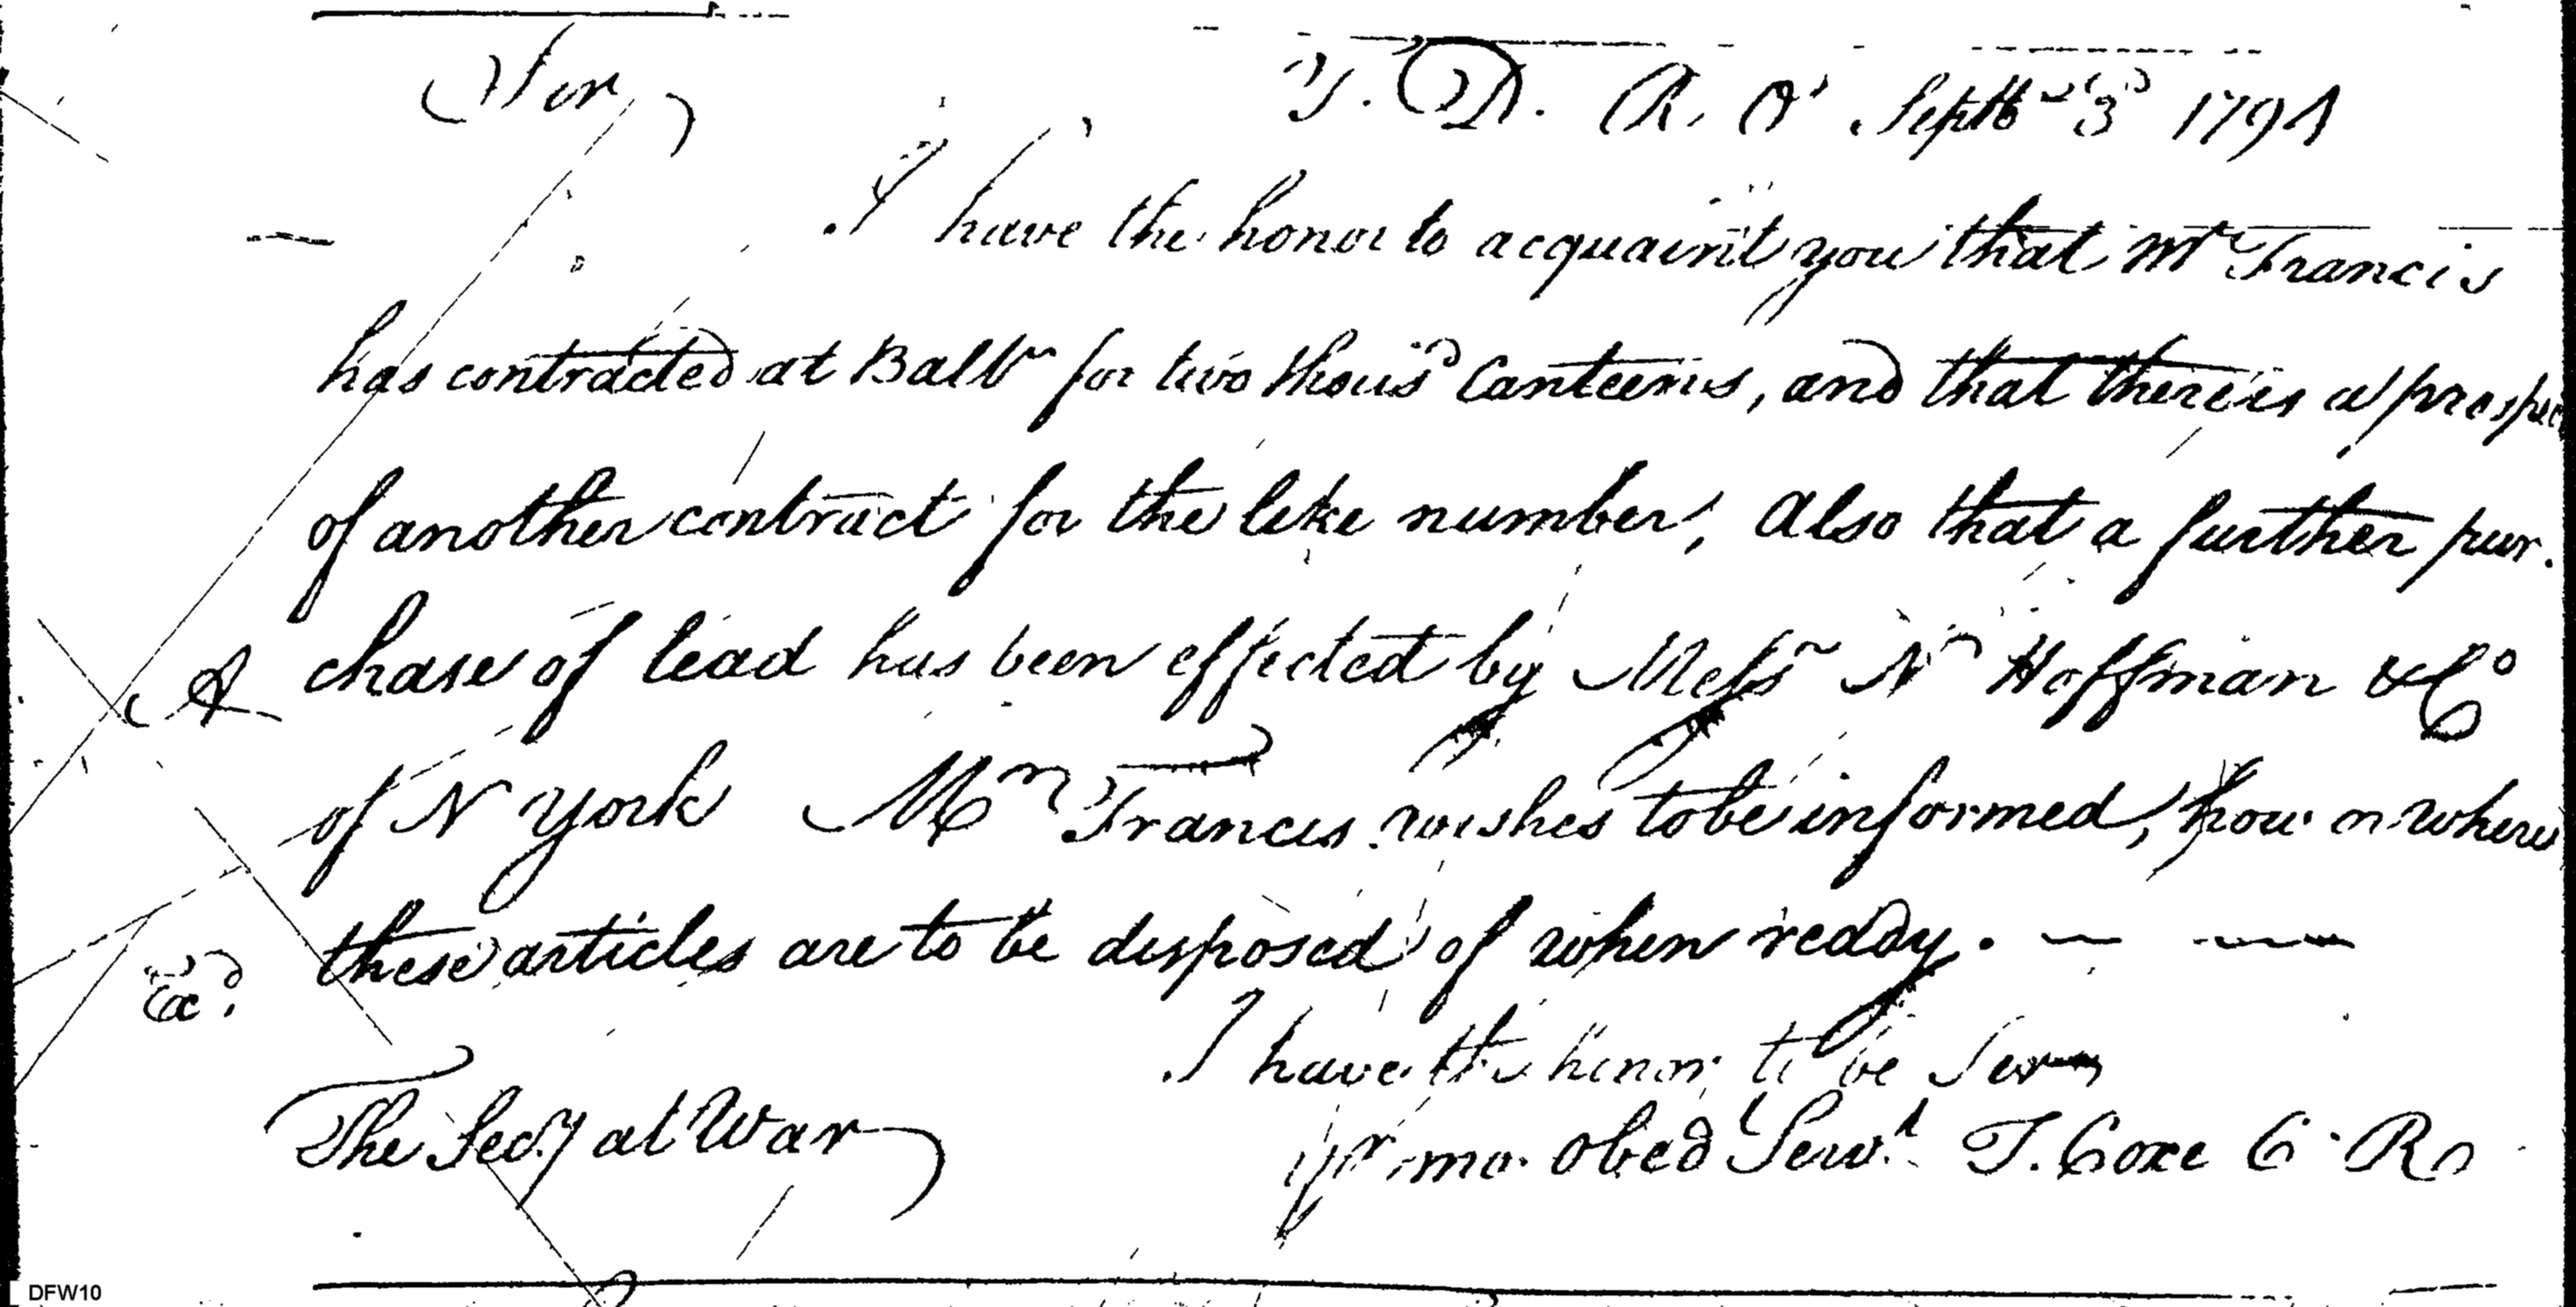 Sir,
T. D. R. O. Septbr 3d 1794
I have the honor to acquaint you that Mr Francis
has contracted at Baltre for two thousd Canteens, and that there is a prospec
of another contract for the like number, Also that a further pur.
A chase of lead has been effected by Messrs Ns Hoffman & Co
of N York Mr Francis wishes to be informed, how or where
these articles are to be disposed of when ready.
Exd.
I have the honor to be Sir
The Secy at War
yr mo. obed Servt. T. Coxe C. R.
DFW10